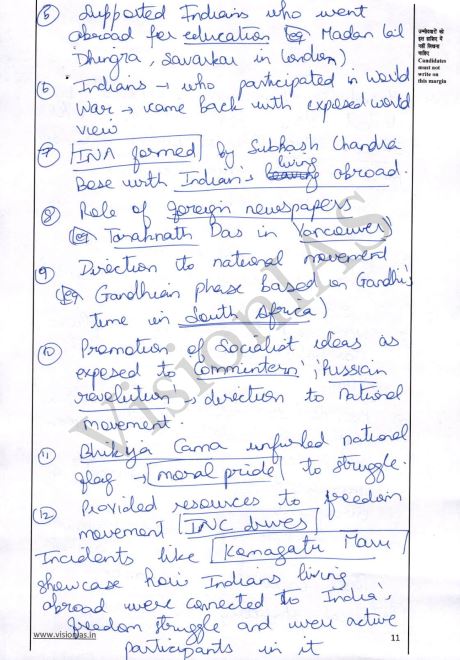 ⑤ Supported Indians who went
abroad for education (eg Madan Lal
Dhingra, Savarkar in London)
⑥ Indians → who participated in World
War → came back with exposed world
view
⑦ INA formed by Subhash Chandra
Bose with Indian's living abroad.
⑧ Role of foreign newspapers
(eg Taraknath Das in Vancouver)
⑨ Direction to national movement
(eg Gandhian phase based on Gandhi's
time in South Africa)
⑩ Promotion of Socialist ideas as
exposed to Commintern, Russian
revolution → direction to national
movement.
⑪ Bhikya Cama unfurled national
flag → moral pride to struggle.
⑫ Provided resources to freedom
movement INC drives
Incidents like Komagatu Maru
showcase how Indians living
abroad were connected to India's
freedom struggle and were active
participants in it
उम्मीदवारों को
इस हाशिए में
नहीं लिखना
चाहिए
Candidates
must not
write on
this margin
VisionIAS
www.visionias.in
11